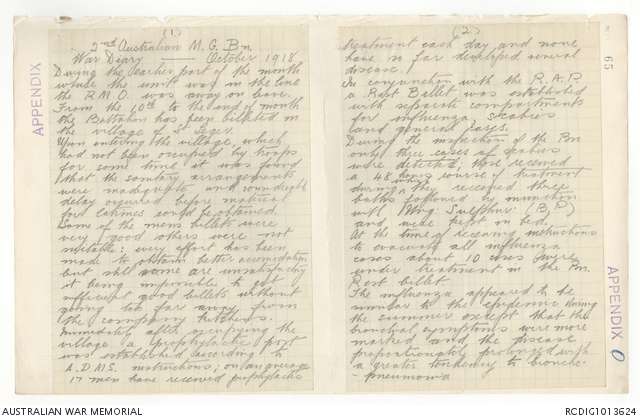 (1)
2nd Australian M. G. Bn.
War Diary — October 1918
During the earlier part of the month
while the unit was in the line
the R.M.O. was away on leave.
From the 10th to the end of month
the Battalion has been billeted in
the village of St Leger.
Upon entering the village, which
had not been occupied by troops
for some time it was found
that the sanitary arrangements
were inadequate and considerable
delay occurred before material
for Latrines could be obtained.
Some of the mens billets were
very good others were not
suitable: every effort has been
made to obtain better accomodation
but still some are unsatisfactory
it being impossible to get
sufficient good billets without
going too far away from
the company kitchens.
Immediately after occupying the
village a prophylactic post
was established according to
A.D.M.S. instructions; on an average
17 men have received prophylactic
APPENDIX
(2)
treatment each day and none
have so far developed venereal
disease.
In conjunction with the R.A.P.
a Rest Billet was established
with separate compartments
for influenza, scabies
and general cases.
During the inspection of the Bn
only three cases of scabies
were detected, these received
a 48 hours course of treatment
during which they received three
baths followed by inunction
with Ung. Sulphur (B.P.)
and were kept in bed.
At the time of receiving instructions
to evacuate all influenza
cases about 10 cases were
under treatment in the Bn.
Rest billet.
The influenza appeared to be
similar to the epidemic during
the summer except that the
bronchial symptoms were more
marked and the disease
proportionately prolonged with
a greater tendency to broncho-
-pneumonia
65
APPENDIX O
AUSTRALIAN WAR MEMORIAL
RCDIG1013624